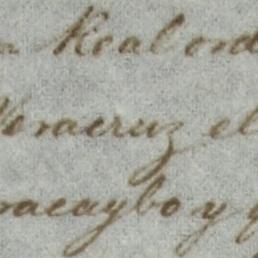 Real ord
Veracruz el
racaybo y